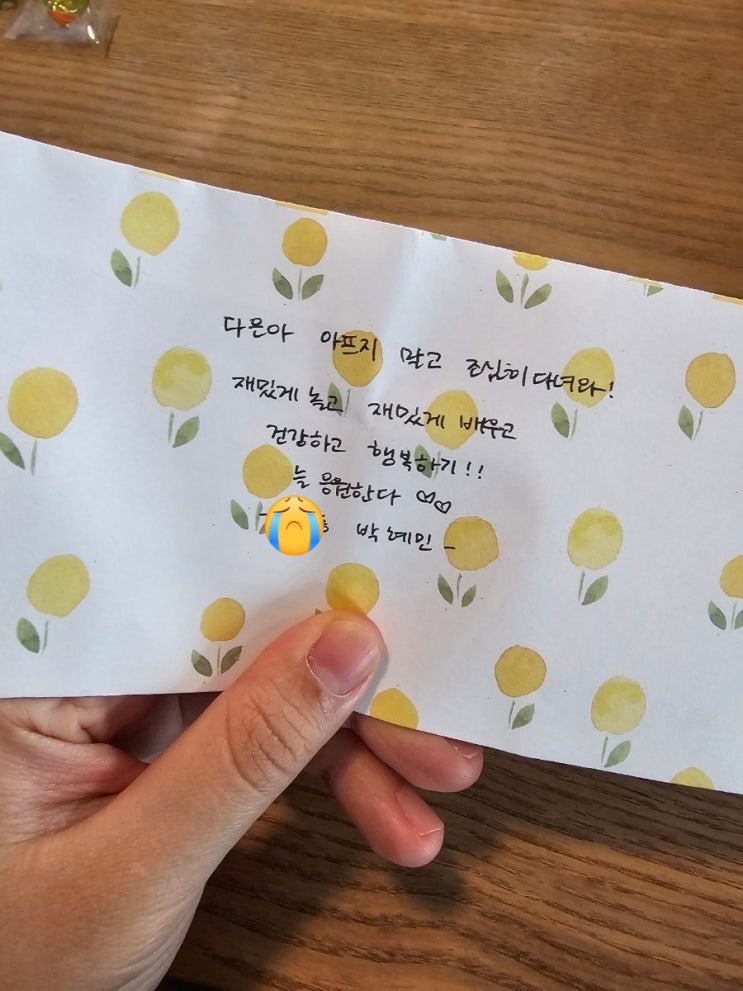 다은아 아프지 말고 조심히 다녀와!
재밌게 놀고 재밌게 배우고
건강하고 행복하기!!
늘 응원한다 ♡♡
박예민 -